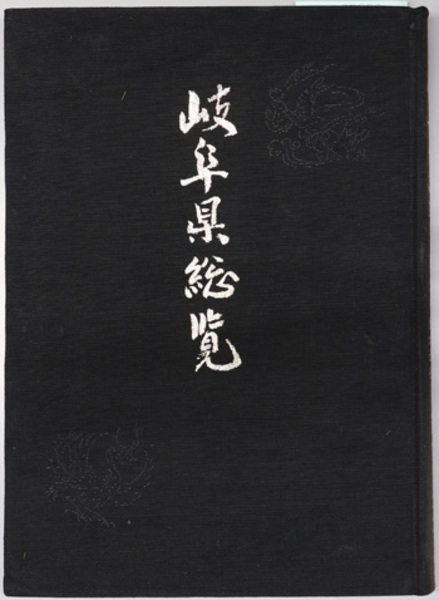 岐阜県総覧